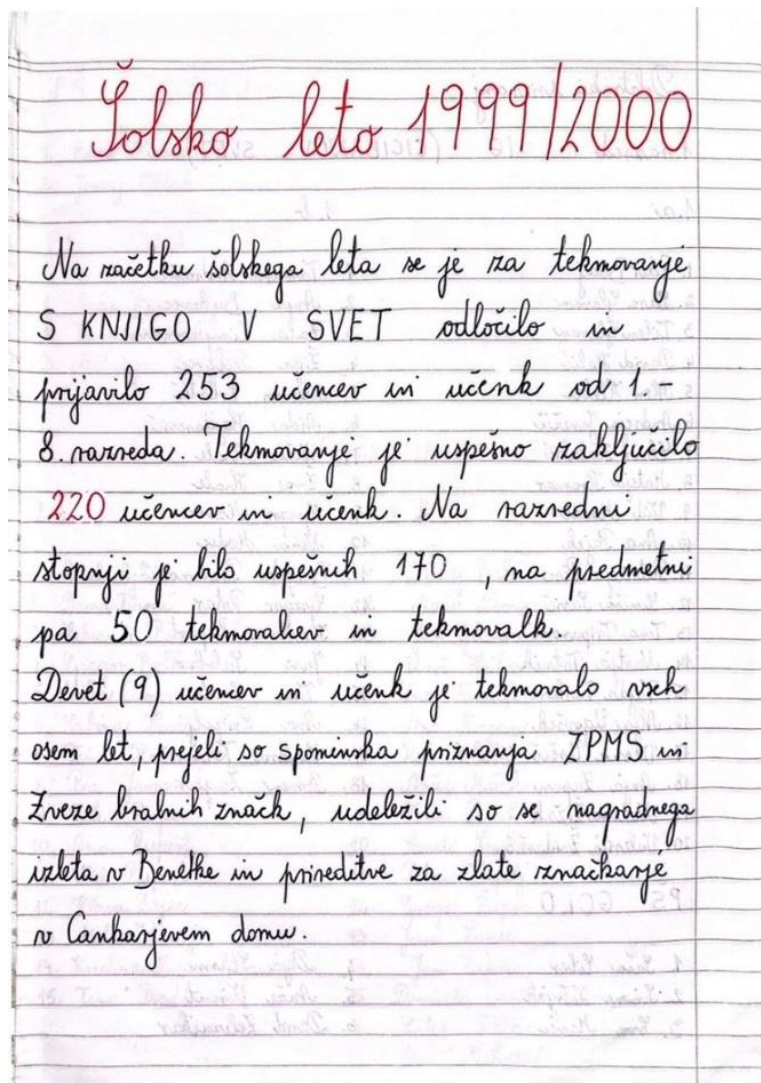 Šolsko leto 1999/2000
Na začetku šolskega leta se je za tekmovanje
S KNJIGO V SVET odločilo in
prijavilo 253 učencev in učenk od 1.-
8. razreda. Tekmovanje je uspešno zaključilo
220 učencev in učenk. Na razredni
stopnji je bilo uspešnih 170, na predmetni
pa 50 tekmovalcev in tekmovalk.
Devet (9) učencev in učenk je tekmovalo vseh
osem let, prejeli so spominska priznanja ZPMS in
Zveze bralnih značk, udeležili so se nagradnega
izleta v Benetke in prireditve za zlate značkarje
v Cankarjevem domu.